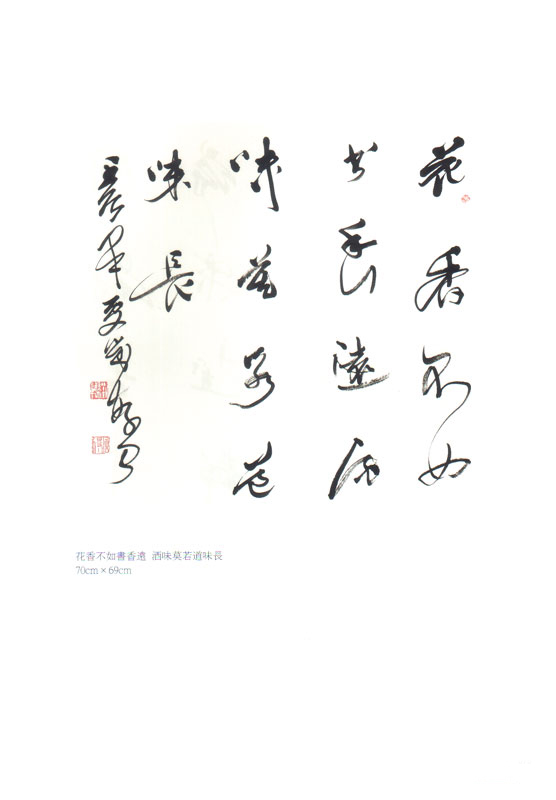 花香不如
书香遠酒
味莫若道
味長
花香不如書香遠 酒味莫若道味長
70cm×69cm